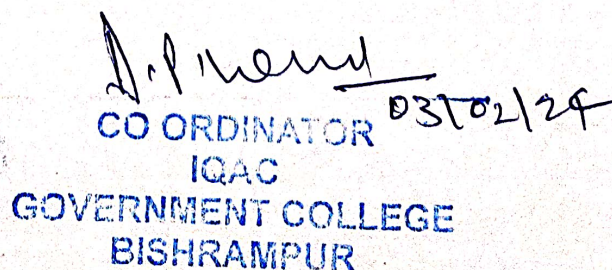 03/02/24
CO ORDINATOR
IQAC
GOVERNMENT COLLEGE
BISHRAMPUR